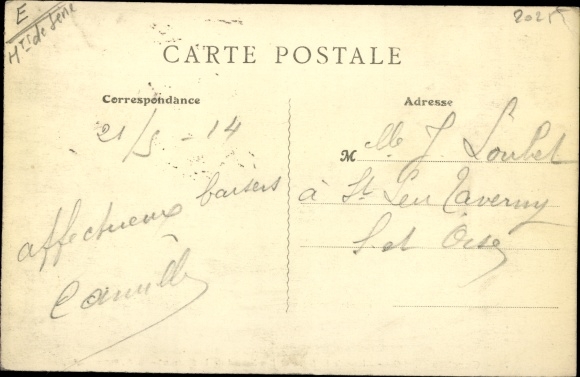 E
Hts de Seine
20255
CARTE POSTALE
Correspondance
21/5 - 14
affectueux baisers
Camille
Adresse
M lle J. Loubet
à St Leu Taverny
S et Oise